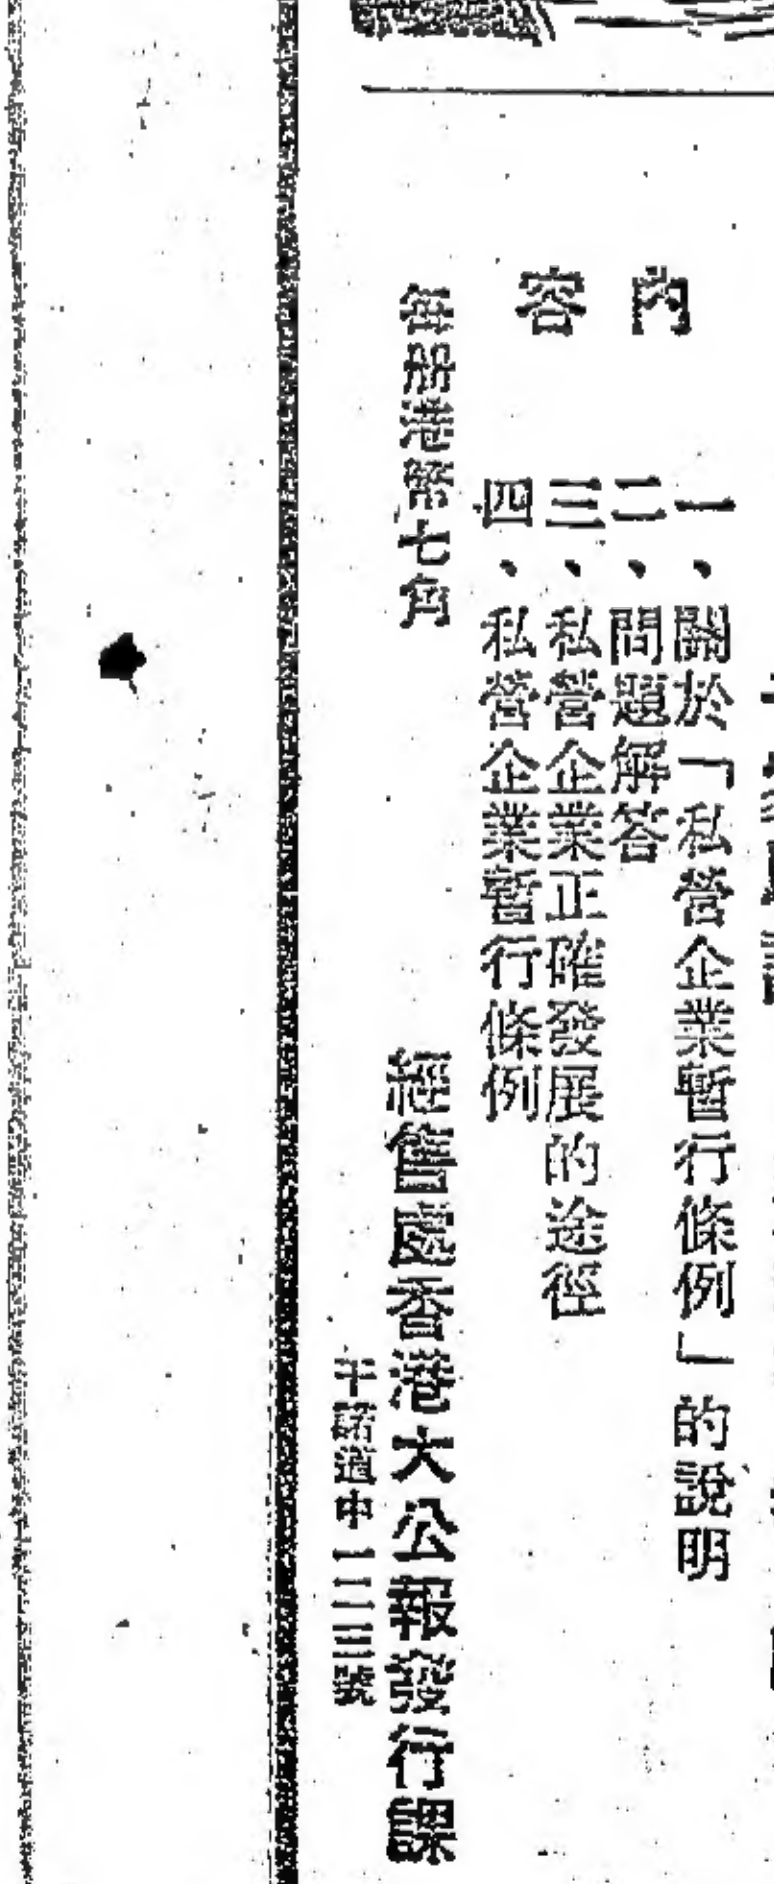 內容
一、關於「私營企業暫行條例」的說明
二、問題解答
三、私營企業正確發展的途徑
四、私營企業暫行條例
每册港幣七角
經售處香港大公報發行課
干諾道中一二三號